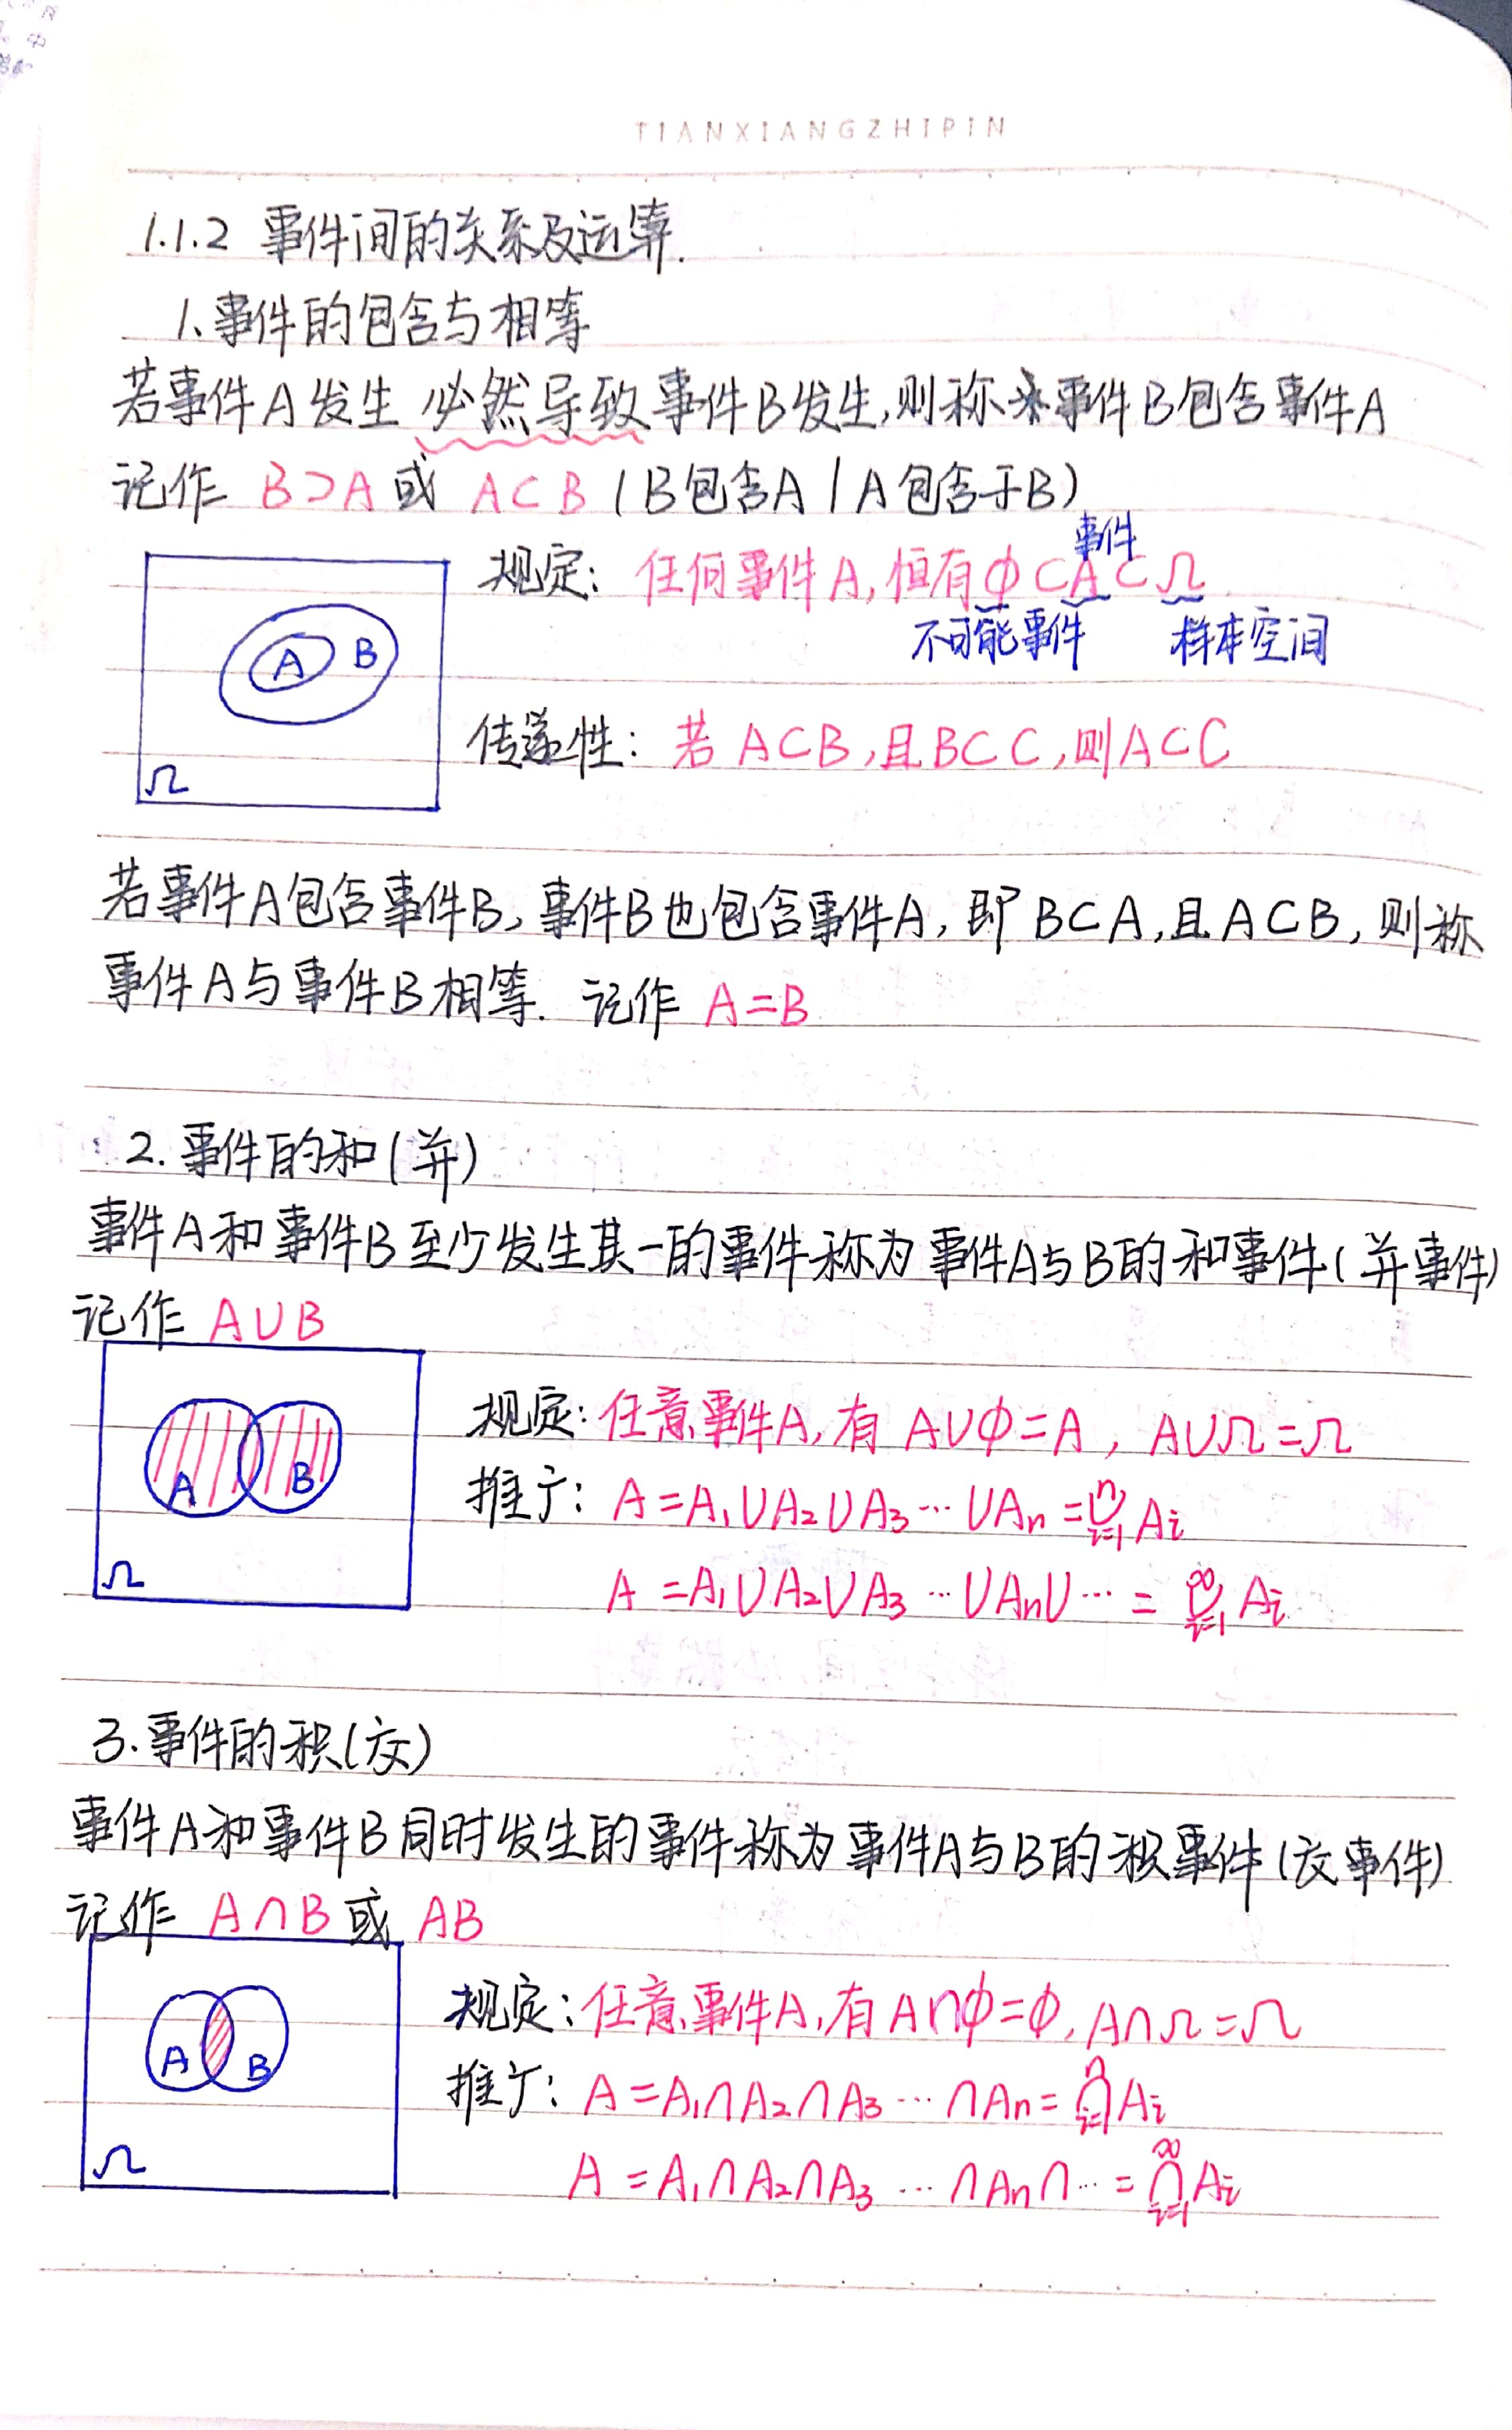 TIANXIANGZHIPIN
1.1.2 事件间的关系及运算.
1、事件的包含与相等
若事件A发生必然导致事件B发生,则称事件B包含事件A
记作 B⊃A 或 A⊂B (B包含A / A包含于B)
事件
规定: 任何事件A,恒有Φ⊂A⊂Ω
不可能事件 样本空间
A B
传递性: 若A⊂B,且B⊂C,则A⊂C
Ω
若事件A包含事件B,事件B也包含事件A,即B⊂A,且A⊂B,则称
事件A与事件B相等. 记作 A=B
2.事件的和(并)
事件A和事件B至少发生其一的事件称为事件A与B的和事件(并事件)
记作 A∪B
规定: 任意事件A,有 A∪Φ=A, A∪Ω=Ω
A B
推广: A=A₁∪A₂∪A₃…∪Aₙ=⋃ⁿᵢ₌₁Aᵢ
Ω
A=A₁∪A₂∪A₃…∪Aₙ∪…=⋃^∞ᵢ₌₁Aᵢ
3.事件的积(交)
事件A和事件B同时发生的事件称为事件A与B的积事件(交事件)
记作 A∩B 或 AB
规定: 任意事件A,有A∩Φ=Φ,A∩Ω=Ω
A B
推广: A=A₁∩A₂∩A₃…∩Aₙ=⋂ⁿᵢ₌₁Aᵢ
Ω
A=A₁∩A₂∩A₃…∩Aₙ∩…=⋂^∞ᵢ₌₁Aᵢ